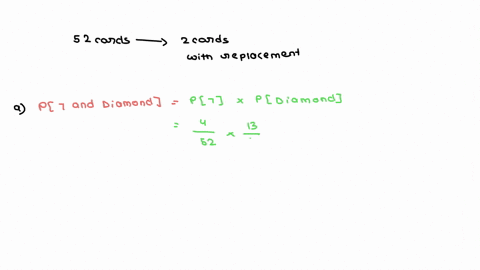 52 cards → 2 cards
with replacement
a) P[7 and Diamond] = P[7] × P[Diamond]
= 4/52 × 13/